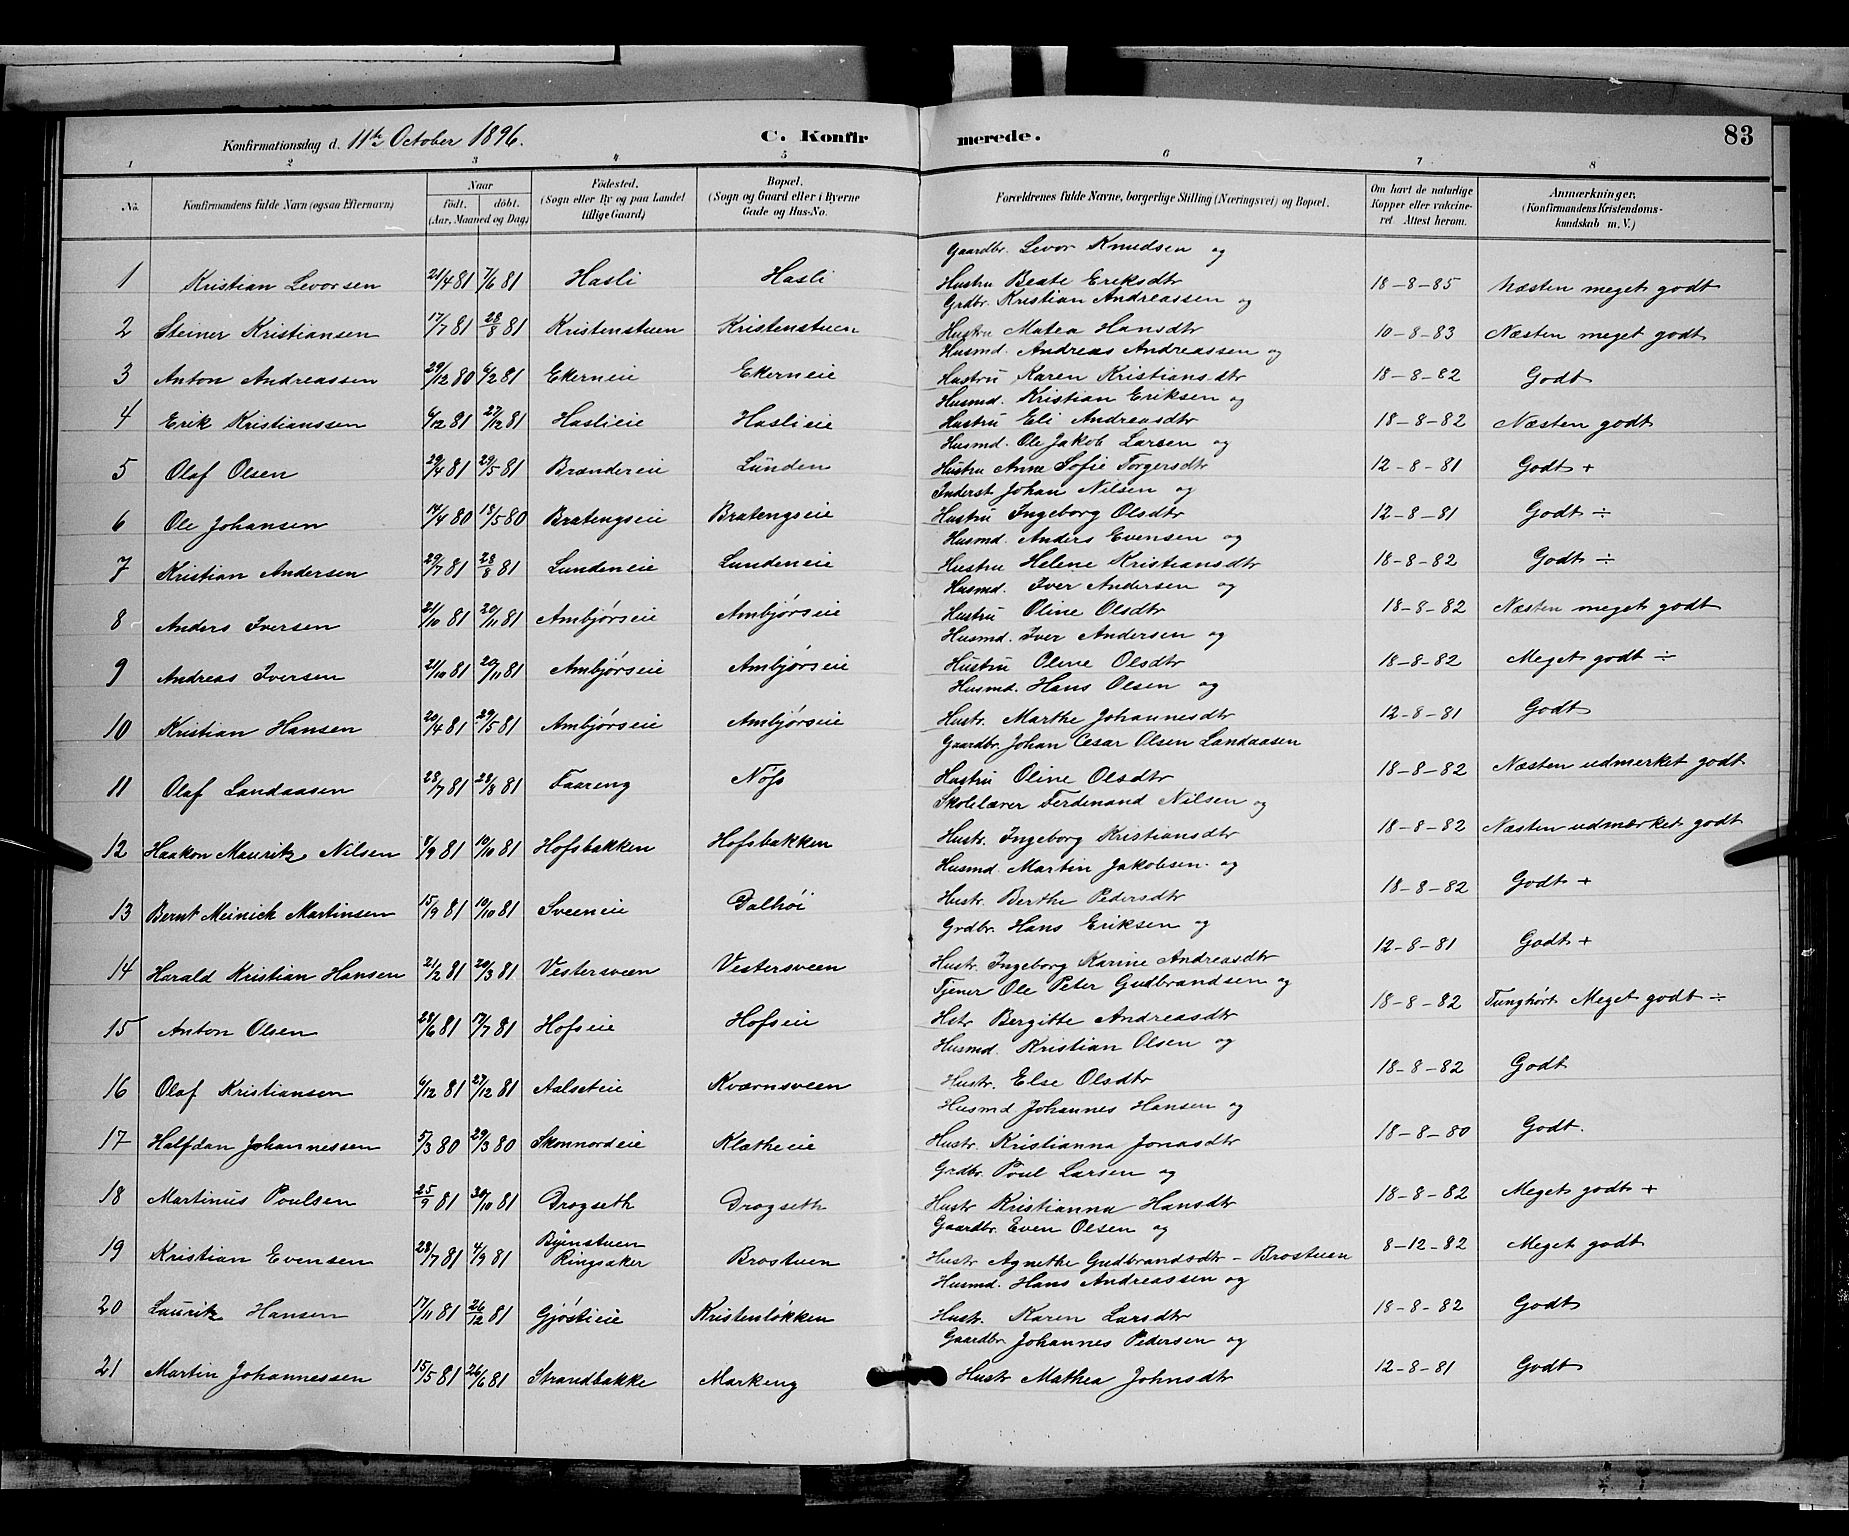 Konfirmationsdag d. 11te October 1896. C. Konfirmerede. 83
1 2 3 4 5 6 7 8
No. Konfirmandens fulde Navn (ogsaa Efternavn) Naar födt. döbt. (Aar, Maaned og Dag) Födested. (Sogn eller By og paa Landet tillige Gaard) Bopæl. (Sogn og Gaard eller i Byerne Gade og Hus-No. Forældrenes fulde Navne, borgerlige Stilling (Næringsvei) og Bopæl. Om havt de naturlige Kopper eller vakcineret. Attest herom. Anmærkninger. (Konfirmandens Kristendomskundskab m. V.)
Gaardbr. Levor Knudsen og
1 Kristian Levorsen 21/4 81 7/6 81 Hasli Hasli Hustru Beate Eriksdtr 18-8-85 Næsten meget godt
Grdbr. Kristian Andreassen og
2 Steiner Kristiansen 17/7 81 28/8 81 Kristenstuen Kristenstuen Hustru Matea Hansdtr 10-8-83 Næsten meget godt
Husmd. Andreas Andreassen og
3 Anton Andreassen 29/12 80 6/2 81 Ekerneie Ekerneie Hustru Karen Kristiansdtr 18-8-82 Godt
Husmd. Kristian Eriksen og
4 Erik Kristianssen 6/12 81 27/12 81 Haslieie Haslieie Hustru Eli Andreasdtr 18-8-82 Næsten godt
Husmd. Ole Jakob Larsen og
5 Olaf Olsen 29/4 81 29/5 81 Brændereie Lunden Hustru Anne Sofie Torgersdtr 12-8-81 Godt +
Inderst Johan Nilsen og
6 Ole Johansen 14/4 80 18/5 80 Bratengseie Bratengseie Hustru Ingeborg Olsdtr 12-8-81 Godt ÷
Husmd. Anders Evensen og
7 Kristian Andersen 29/7 81 28/8 81 Lundeneie Lundeneie Hustru Helene Kristiansdtr 18-8-82 Godt ÷
Husmd. Iver Andersen og
8 Anders Iversen 21/10 81 20/11 81 Ambjørseie Ambjørseie Hustru Oline Olsdtr 18-8-82 Næsten meget godt
Husmd. Iver Andersen og
9 Andreas Iversen 21/10 81 20/11 81 Ambjørseie Ambjørseie Hustru Oline Olsdtr 18-8-82 Meget godt ÷
Husmd. Hans Olsen og
10 Kristian Hansen 20/4 81 29/5 81 Ambjørseie Ambjørseie Hustr. Marthe Johannesdtr 12-8-81 Godt
Gaardbr. Johan Cesar Olsen Landaasen
11 Olaf Landaasen 23/7 81 28/8 81 Faareng Nøss Hustru Oline Olsdtr 18-8-82 Næsten udmerket godt
Skolelærer Ferdinand Nilsen og
12 Haakon Mauritz Nilsen 4/9 81 10/10 81 Hofsbakken Hofsbakken Hustr. Ingeborg Kristiansdtr 18-8-82 Næsten udmærket godt
Husmd. Martin Jakobsen og
13 Bernt Meinich Martinsen 15/9 81 10/10 81 Sveeneie Dalhøi Hustr. Berthe Pedersdtr 18-8-82 Godt +
Grdbr. Hans Eriksen og
14 Harald Kristian Hansen 21/2 81 20/3 81 Vestersveen Vestersveen Hustr. Ingeborg Karine Andreasdtr 12-8-81 Godt +
Tjener Ole Peter Gudbrandsen og
15 Anton Olsen 23/6 81 17/7 81 Hofseie Hofseie Hstr Bergitte Andreasdtr 18-8-82 Tunghørt Meget godt ÷
Husmd. Kristian Olsen og
16 Olaf Kristiansen 6/12 81 27/12 81 Aalseteie Kværnsveen Hustr. Else Olsdtr 18-8-82 Godt
Husmd Johannes Hansen og
17 Halfdan Johannessen 5/3 80 29/3 80 Skonnordeie Klætheeie Hustr. Kristianna Jonasdtr 18-8-80 Godt.
Grdbr. Poul Larsen og
18 Martinus Poulsen 25/9 81 30/10 81 Drogseth Drogseth Hustr Kristianna Hansdtr 18-8-82 Meget godt +
Gaardbr Even Olsen og
19 Kristian Evensen 28/7 81 4/9 81 Bjønstuen Ringsaker Brostuen Hustr Agnethe Gudbrandsdtr - Brostuen 8-12-82 Meget godt
Husmd. Hans Andreassen og
20 Lauritz Hansen 17/11 81 26/12 81 Gjøstieie Kristenløkken Hustr. Karen Larsdtr 18-8-82 Godt
Gaardbr Johannes Pedersen og
21 Martin Johannessen 15/5 81 26/6 81 Strandbakke Markeng Hustr Mathea Johnsdtr 12-8-81 Godt